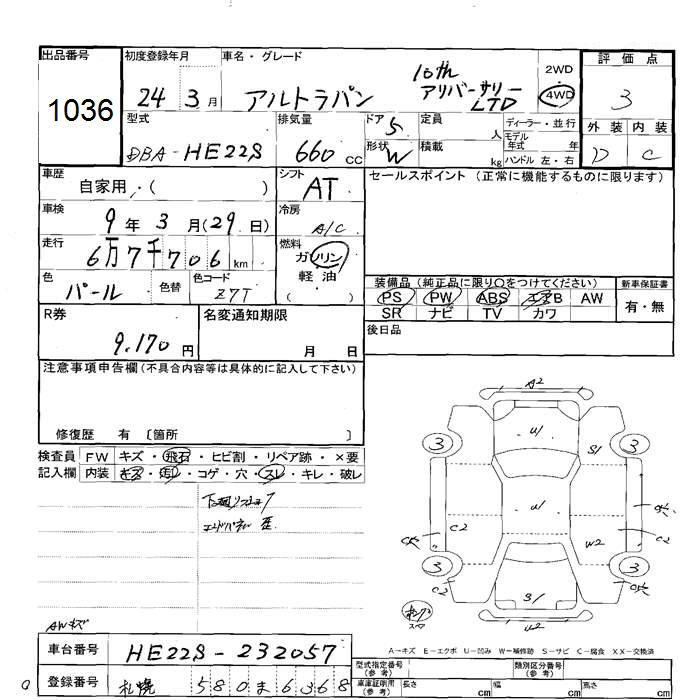 出品番号
1036
初度登録年月
24 3月
車名・グレード
アルトラパン
10th
アリバーサリー
LTD
2WD
4WD
評価点
3
外装 内装
D C
型式
DBA-HE22S
排気量
660 CC
ドア 5
形状 W
定員 人
積載 kg
ディーラー・並行
モデル年式 年
ハンドル 左・右
車歴
自家用・( )
シフト
AT
セールスポイント (正常に機能するものに限ります)
車検
9年3月(29日)
冷房
A/C
走行
6万7千706km
燃料
ガソリン
軽油
( )
色
パール
色替
色コード
Z7T
装備品 (純正品に限り○をつけてください)
PS PW ABS エアB AW
SR ナビ TV カワ
新車保証書
有・無
R券
9,170円
名変通知期限
月 日
後日品
注意事項申告欄(不具合内容等は具体的に記入して下さい)
修復歴 有 〔箇所 〕
検査員 FW キズ・飛石・ヒビ割・リペア跡・×要
記入欄 内装 キズ・汚れ・コゲ・穴・スレ・キレ・破レ
A2
U1
3
3
S1
U1
C2
C2
W2
3
3
C2
S1
U2
スペア
AWキズ
A-キズ E-エクボ U-凹み W-補修跡 S-サビ C-腐食 XX-交換済
車台番号
HE22S-232057
登録番号
札幌 580 ま 6368
型式指定番号
(参考)
類別区分番号
(参考)
車庫証明用
(参考)
長さ cm
幅 cm
高さ cm